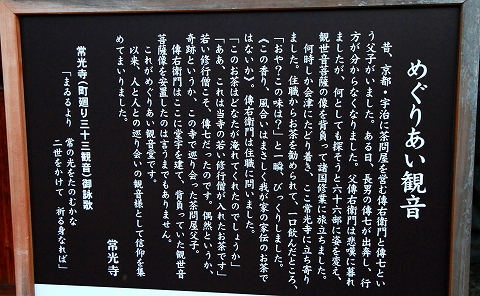 めぐりあい観音
昔、京都・宇治に茶問屋を営む傳右衛門と傳七とい
う父子がいました。ある日、長男の傳七が出奔し、行
方が分からなくなりました。父傳右衛門は悲嘆に暮れ
ましたが、何としても探そうと六十六部に姿を変え、
観世音菩薩の像を背負って諸国修業に旅立ちました。
何時しか会津にたどり着き、ここ常光寺に立ち寄り
ました。住職からお茶を勧められて、一口飲んだところ、
「おや?この味は?」と一瞬びっくりしました。
《この香り、風合いはまさしく我が家の家伝のお茶で
はないか》。傳右衛門は住職に問いました。
「このお茶はどなたが淹れてくれたのでしょうか」
「ああ、これは当寺の若い修行僧が入れたお茶です」
若い修行僧こそ、傳七だったのです。偶然というか、
奇跡というか、この寺で巡り合った茶問屋父子。
傳右衛門はここに堂宇を建て、背負っていた観世音
菩薩像を安置したのは言うまでもありません。
これがめぐりあい観音堂です。
以来、人と人との巡り合いの観音様として信仰を集
めてまいりました。
常光寺
常光寺（町廻り三十三観音）御詠歌
「まゐるより 常の光をたのむかな
二世をかけて 祈る身なれば」